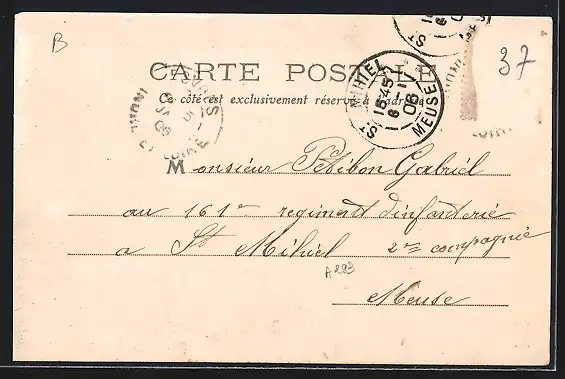 B
37
CARTE POSTALE
Ce côté est exclusivement réservé à l'adresse
ST MIHIEL
15-45
6 -11
06
MEUSE
Monsieur Petibon Gabriel
au 161me regiment d'infanterie
a St Mihiel 2me compagnie
A293
Meuse